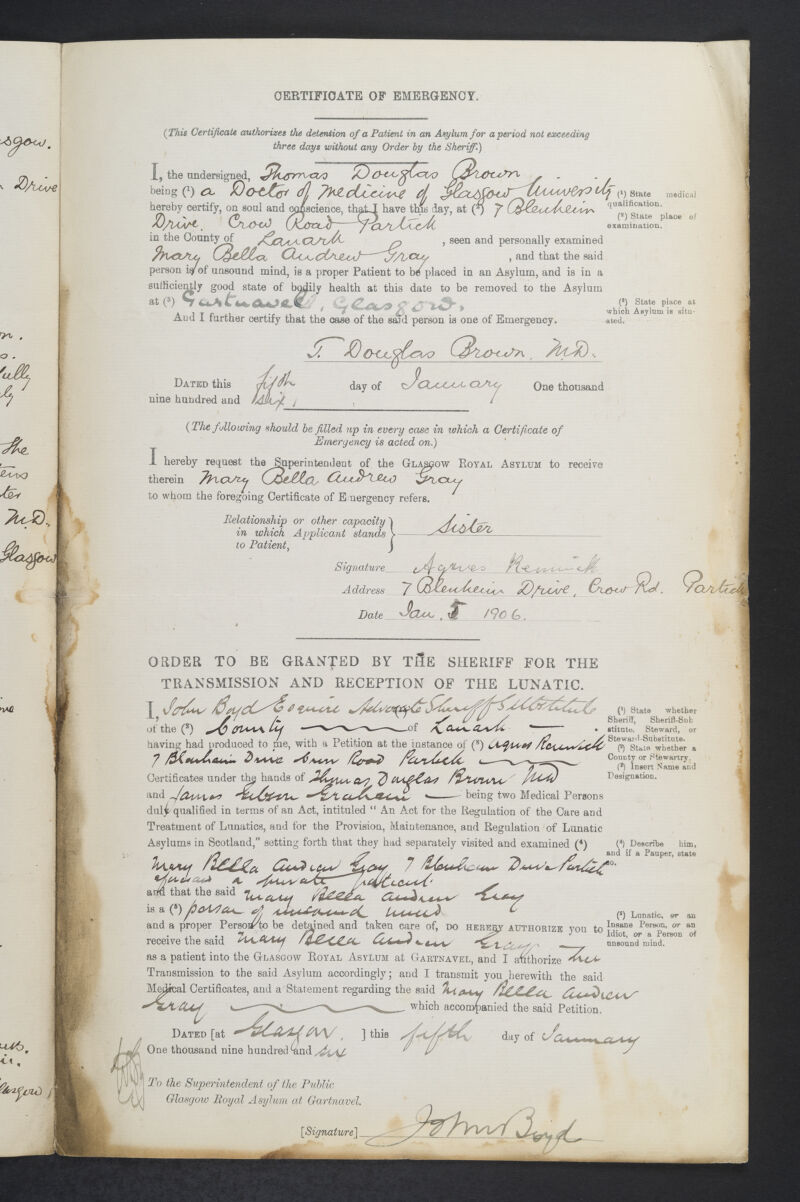 asgow.
Drive
The
M.D.
Glasgow
CERTIFICATE OF EMERGENCY.
(This Certificate authorizes the detention of a Patient in an Asylum for a period not exceeding
three days without any Order by the Sheriff.)
I, the undersigned, Thomas Douglas Brown
being (¹) a Doctor of Medicine of Glasgow University
(¹) State medical
qualification.
hereby certify, on soul and conscience, that I have this day, at (²) 7 Blenheim
(²) State place of
examination.
Drive, Crow Road Partick
in the County of Lanark, seen and personally examined
Mary Bella Andrew Gray, and that the said
person is of unsound mind, is a proper Patient to be placed in an Asylum, and is in a
sufficiently good state of bodily health at this date to be removed to the Asylum
at (³) Gartnavel, Glasgow.
(³) State place at
which Asylum is situ-
ated.
And I further certify that the case of the said person is one of Emergency.
T. Douglas Brown, M.D.
DATED this fifth day of January One thousand
nine hundred and six.
(The following should be filled up in every case in which a Certificate of
Emergency is acted on.)
I hereby request the Superintendent of the GLASGOW ROYAL ASYLUM to receive
therein Mary Bella Andrew Gray
to whom the foregoing Certificate of Emergency refers.
Relationship or other capacity
in which Applicant stands
to Patient,
Sister
Signature Agnes Renwick
Address 7 Blenheim Drive, Crow Rd. Partick
Date Jan. 5 1906.
ORDER TO BE GRANTED BY THE SHERIFF FOR THE
TRANSMISSION AND RECEPTION OF THE LUNATIC.
I, John Boyd Esquire Advocate Sheriff Substitute
(¹) State whether
Sheriff, Sheriff-Sub
stitute, Steward, or
Steward-Substitute.
of the (²) County of Lanark
(²) State whether a
County or Stewartry.
having had produced to me, with a Petition at the instance of (³) Agnes Renwick
(³) Insert Name and
Designation.
7 Blenheim Drive Crow Road Partick
Certificates under the hands of Thomas Douglas Brown MD
and James Gibson Graham being two Medical Persons
duly qualified in terms of an Act, intituled "An Act for the Regulation of the Care and
Treatment of Lunatics, and for the Provision, Maintenance, and Regulation of Lunatic
Asylums in Scotland," setting forth that they had separately visited and examined (⁴)
(⁴) Describe him,
and if a Pauper, state
so.
Mary Bella Andrew Gray 7 Blenheim Drive Partick
a private patient.
and that the said Mary Bella Andrew Gray
is a (⁵) person of unsound mind
(⁵) Lunatic, or an
Insane Person, or an
Idiot, or a Person of
unsound mind.
and a proper Person to be detained and taken care of, DO HEREBY AUTHORIZE you to
receive the said Mary Bella Andrew Gray
as a patient into the GLASGOW ROYAL ASYLUM at GARTNAVEL, and I authorize her
Transmission to the said Asylum accordingly; and I transmit you herewith the said
Medical Certificates, and a Statement regarding the said Mary Bella Andrew
Gray which accompanied the said Petition.
DATED [at Glasgow, ] this fifth day of January
One thousand nine hundred and six
To the Superintendent of the Public
Glasgow Royal Asylum at Gartnavel.
[Signature] John Boyd